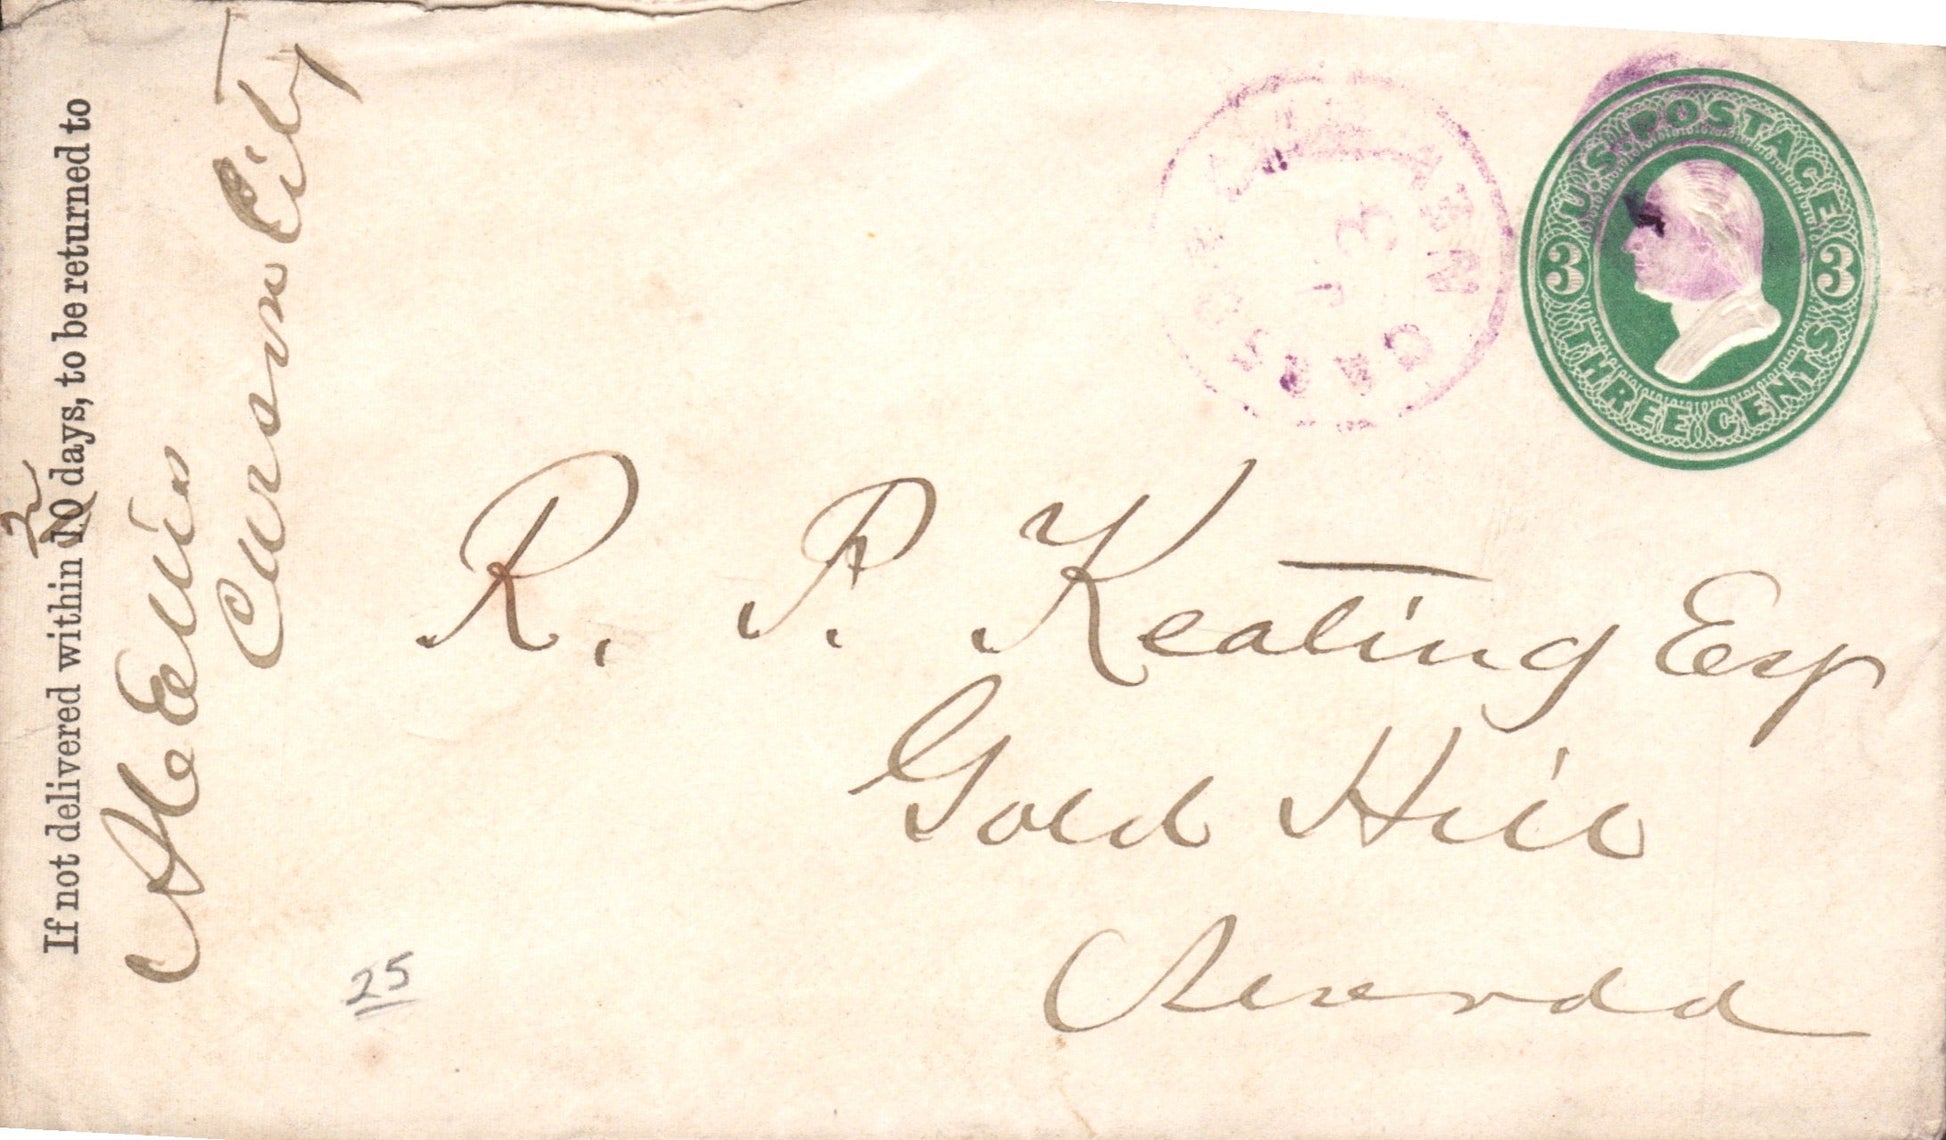 If not delivered within 10 days, to be returned to
2
Ellis
Carson City
CARSON CITY NEV
3
U.S. POSTAGE
3 3
THREE CENTS
R. P. Keating Esq
Gold Hill
Nevada
25